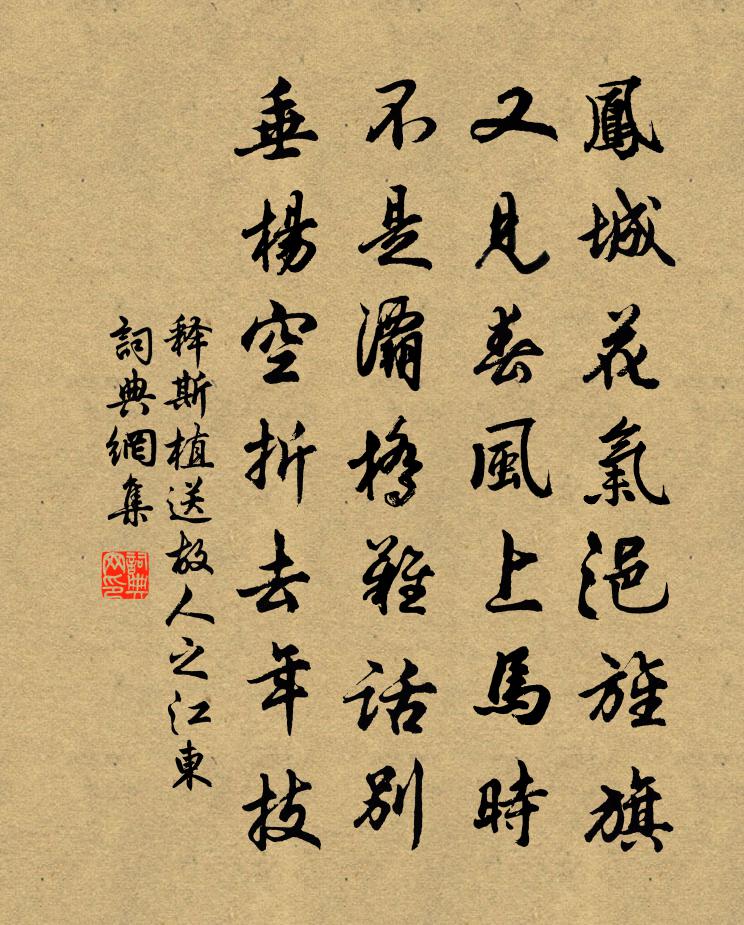 鳳城花氣浥旌旗
又見春風上馬時
不是灞橋難話別
垂楊空折去年技
释斯植送故人之江東
詞典網集
詞典
网印